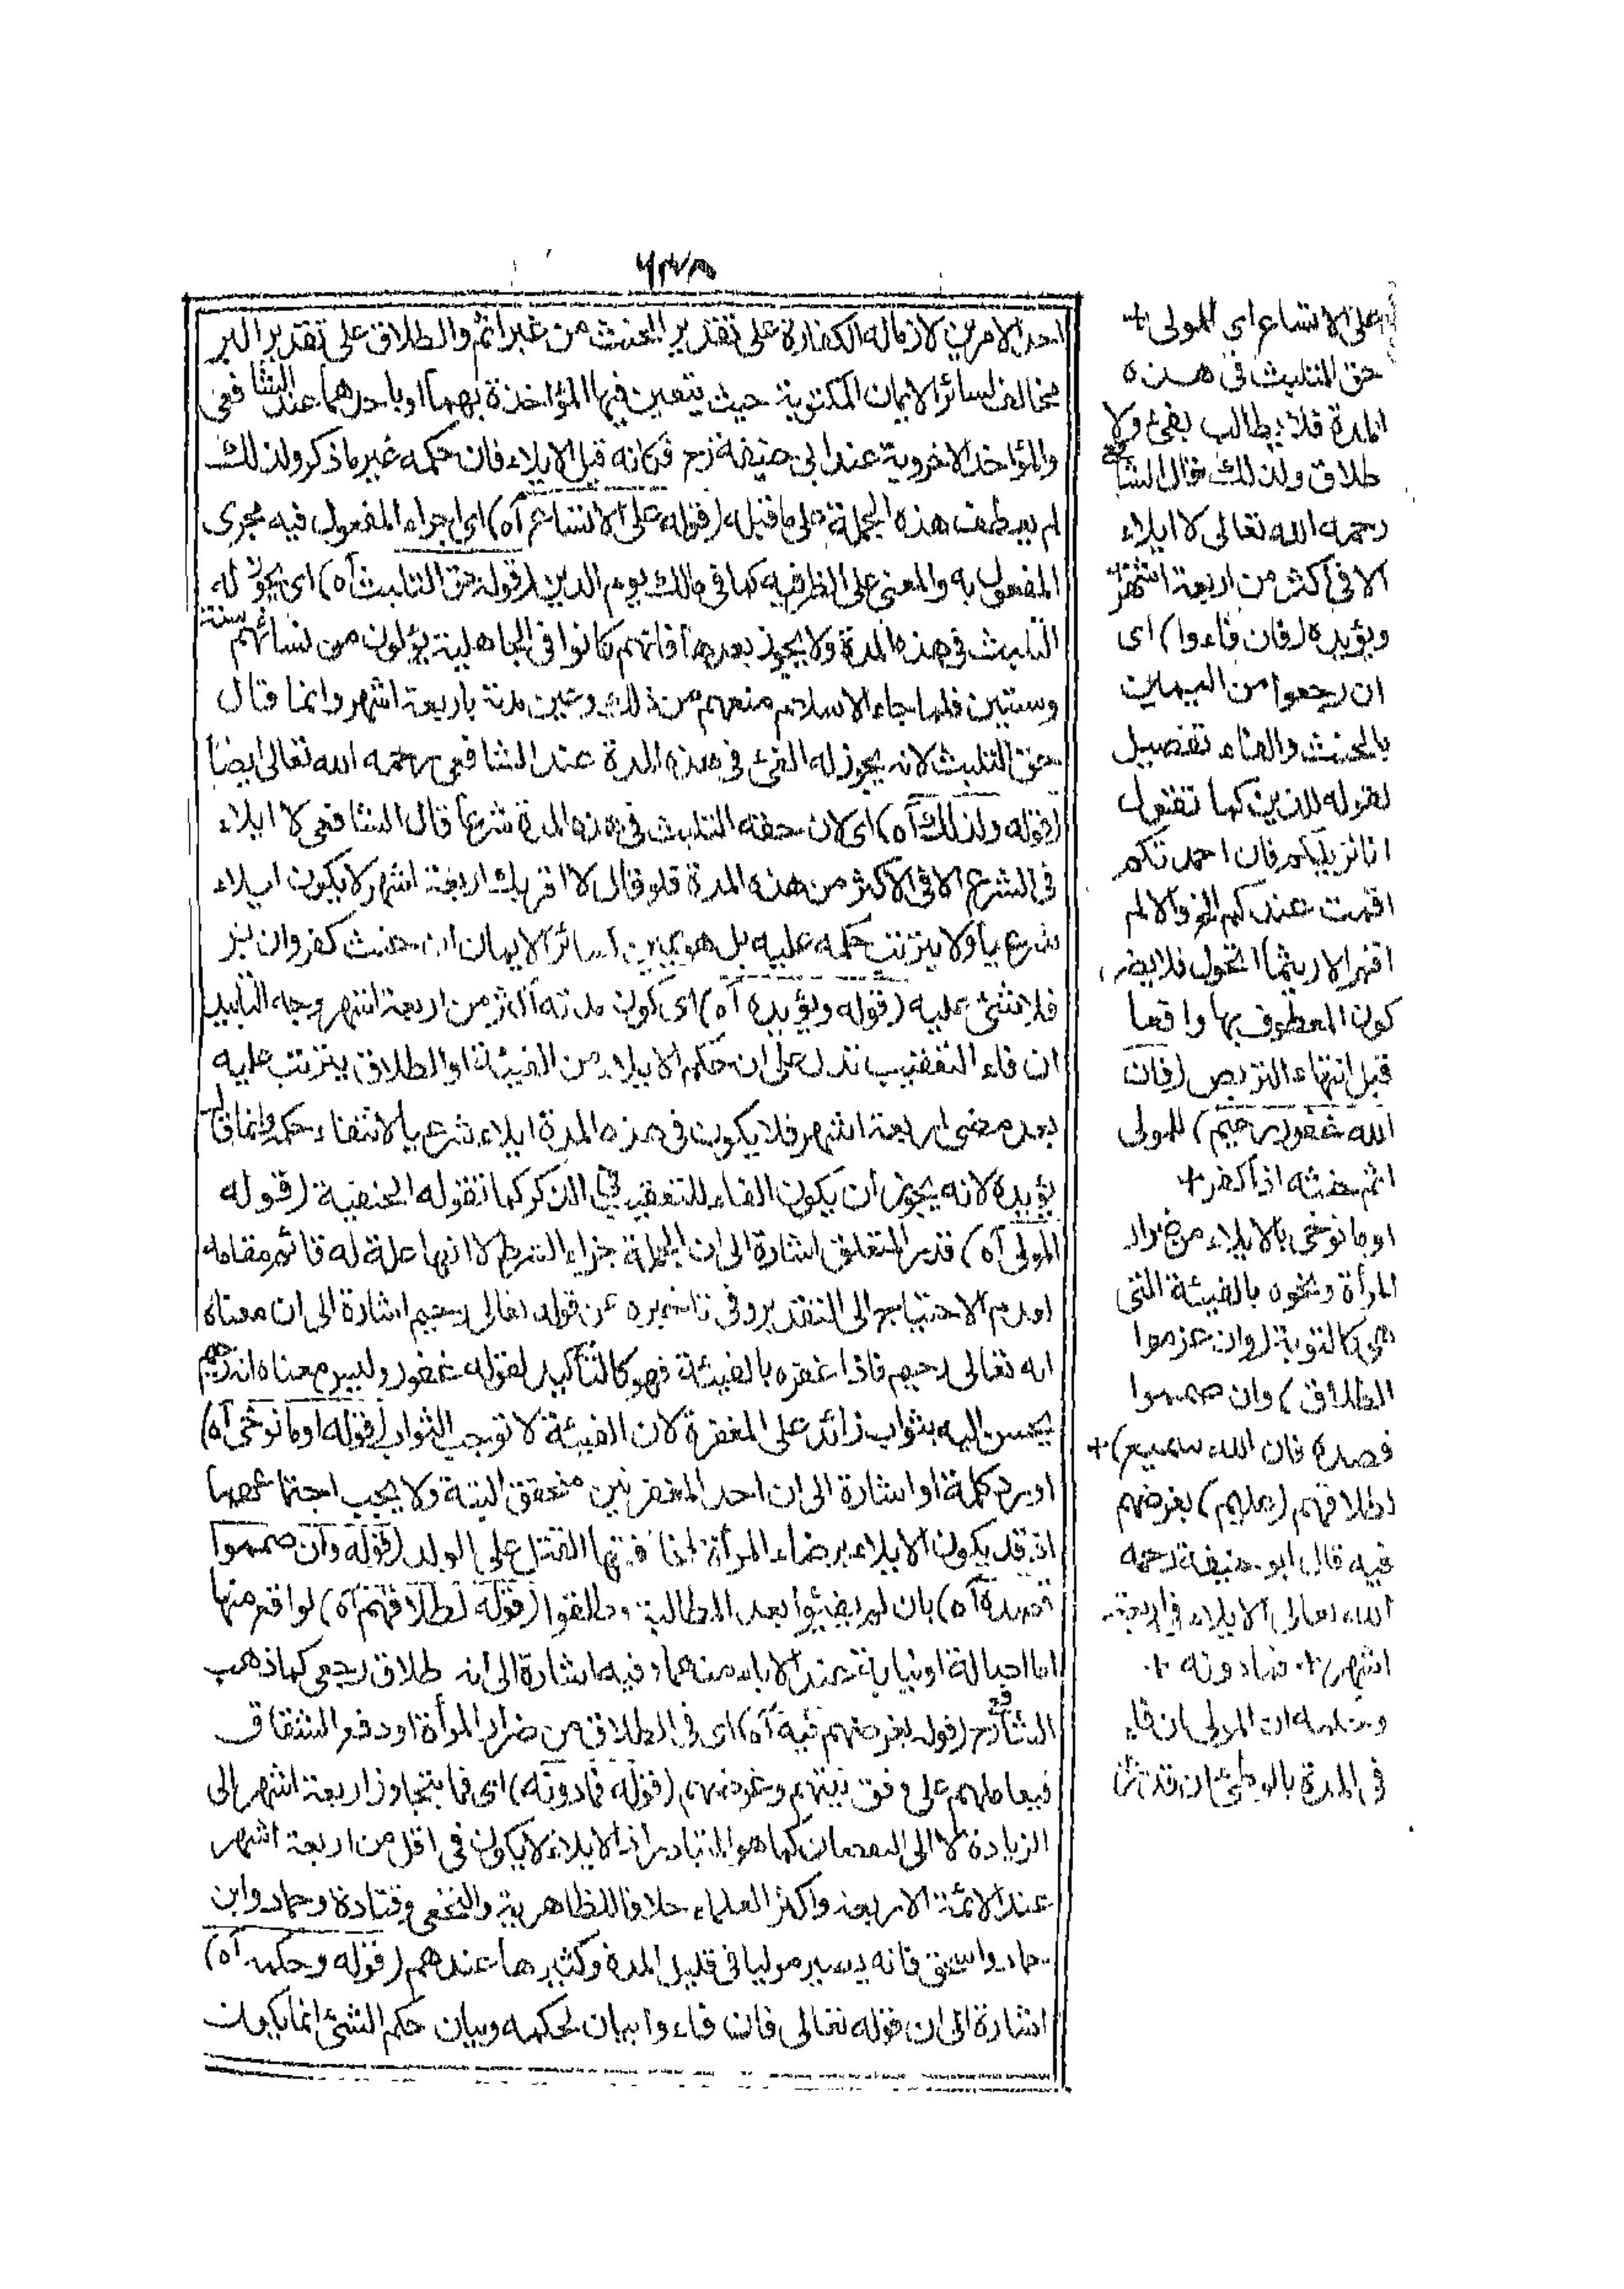 ٦٣٨
احد الامرين لازماله الكفارة على تقدير الحنث من غير اثم والطلاق على تقدير البر
مخالف لسائر الايمان المكتوبة حيث يتعين فيها المؤاخذة بهما او باحدهما عند الشافعى
والمؤاخذة الاخروية عند ابى حنيفة رح فكانه قبل الايلاء فان حكمه غير ما ذكر ولذلك
لم يعطف هذه الجملة على ما قبله (قوله على الاتساع آه) اى اجراء المفعول فيه مجرى
المفعول به والمعنى على الظرفيه كما فى مالك يوم الدين (قوله حق التلبث آه) اى يجوز له
التلبث فى هذه المدة ولا يجوز بعدها فانهم كانوا فى الجاهلية يؤلون من نسائهم سنة
وسنتين فلما جاء الاسلام منعهم من ذلك وعين مدة باربعة اشهر وانما قال
حق التلبث لانه يجوز له الفئ فى هذه المدة عند الشافعى رحمه الله تعالى ايضا
(قوله ولذلك آه) اى لان حقه التلبث فى هذه المدة شرعا قال الشافعى لا ايلاء
فى الشرع الا فى الاكثر من هذه المدة فلو قال لا اقربك اربعة اشهر لا يكون ايلاء
شرعيا ولا يترتب حكمه عليه بل هو يمين كسائر الايمان ان حنث كفر وان بر
فلا شئ عليه (قوله ويؤيده آه) اى كون مدته اكثر من اربعة اشهر وجه التأييد
ان فاء التعقيب تدل على ان حكم الايلاء من الفيئة او الطلاق يترتب عليه
بعد مضى اربعة اشهر فلا يكون فى هذه المدة ايلاء شرعيا لانتفاء حكمه وانما قال
يؤيده لانه يجوز ان يكون الفاء للتعقيب فى الذكر كما تقوله الحنفية (قوله
المولى آه) قدر المتعلق اشارة الى ان الجملة جزاء الشرط لا انها علة له قائم مقامه
لعدم الاحتياج الى التقدير وفى تاخيره عن قوله تعالى رحيم اشارة الى ان معناه
انه تعالى رحيم فاذا غفره بالفيئة فهو كالتأكيد لقوله غفور وليس معناه انه رحيم
يحسن اليه بثواب زائد على المغفرة لان الفيئة لا توجب الثواب (قوله او ما توخى آه)
اورد كلمة او اشارة الى ان احد المغفرتين متحقق البتة ولا يجب اجتماعهما
اذ قد يكون الايلاء برضاء المرأة لمخافتها الغيل على الولد (قوله وان صمموا
قصده آه) بان لم يفيئوا بعد المطالبة وطلقوا (قوله لطلاقهم آه) لواقع منها
اما اصالة او نيابة عند الاباء منهما وفيه اشارة الى انه طلاق رجعى كما ذهب
الشافعى رح (قوله بغرضهم فيه آه) اى فى الطلاق من ضرار المرأة او دفع الشقاق
فيعاملهم على وفق نيتهم وغرضهم (قوله فما دونه) اى فما يتجاوز اربعة اشهر الى
الزيادة لا الى النقصان كما هو المتبادر اذ الايلاء لا يكون فى اقل من اربعة اشهر
عند الائمة الاربعة واكثر العلماء خلافا للظاهرية والنخعى وقتادة وحماد وابن
حماد واسحق فانه يصير موليا فى قليل المدة وكثيرها عندهم (قوله وحكمه آه)
اشارة الى ان قوله تعالى فان فاءوا بيان لحكمه وبيان حكم الشئ انما يكون
على الاتساع اى للمولى +
حق التلبث فى هذه
المدة فلا يطالب بفئ ولا
طلاق ولذلك قال الشافعى
رحمه الله تعالى لا ايلاء
الا فى اكثر من اربعة اشهر
ويؤيده (فان فاءوا) اى
ان رجعوا من اليمين
بالحنث والفاء تفصيل
لقوله للذين كما تقول
انا نزيلكم فان احمدتكم
اقمت عندكم الخ والا لم
اقم الا ريثما اتحول فلا يضر
كون المعطوف بها واقعا
قبل انتهاء التربص (فان
الله غفور رحيم) للمولى
اثم حنثه اذا كفر +
او ما توخى بالايلاء من ضرار
المرأة ونحوه بالفيئة التى
هى كالتوبة (وان عزموا
الطلاق) وان صمموا
قصده فان الله سميع) +
لطلاقهم (عليم) بغرضهم
فيه قال ابو حنيفة رحمه
الله تعالى الايلاء فى اربعة
اشهر + فما دونه +
وحكمه ان المولى ان فاء
فى المدة بالوطئ ان قدر